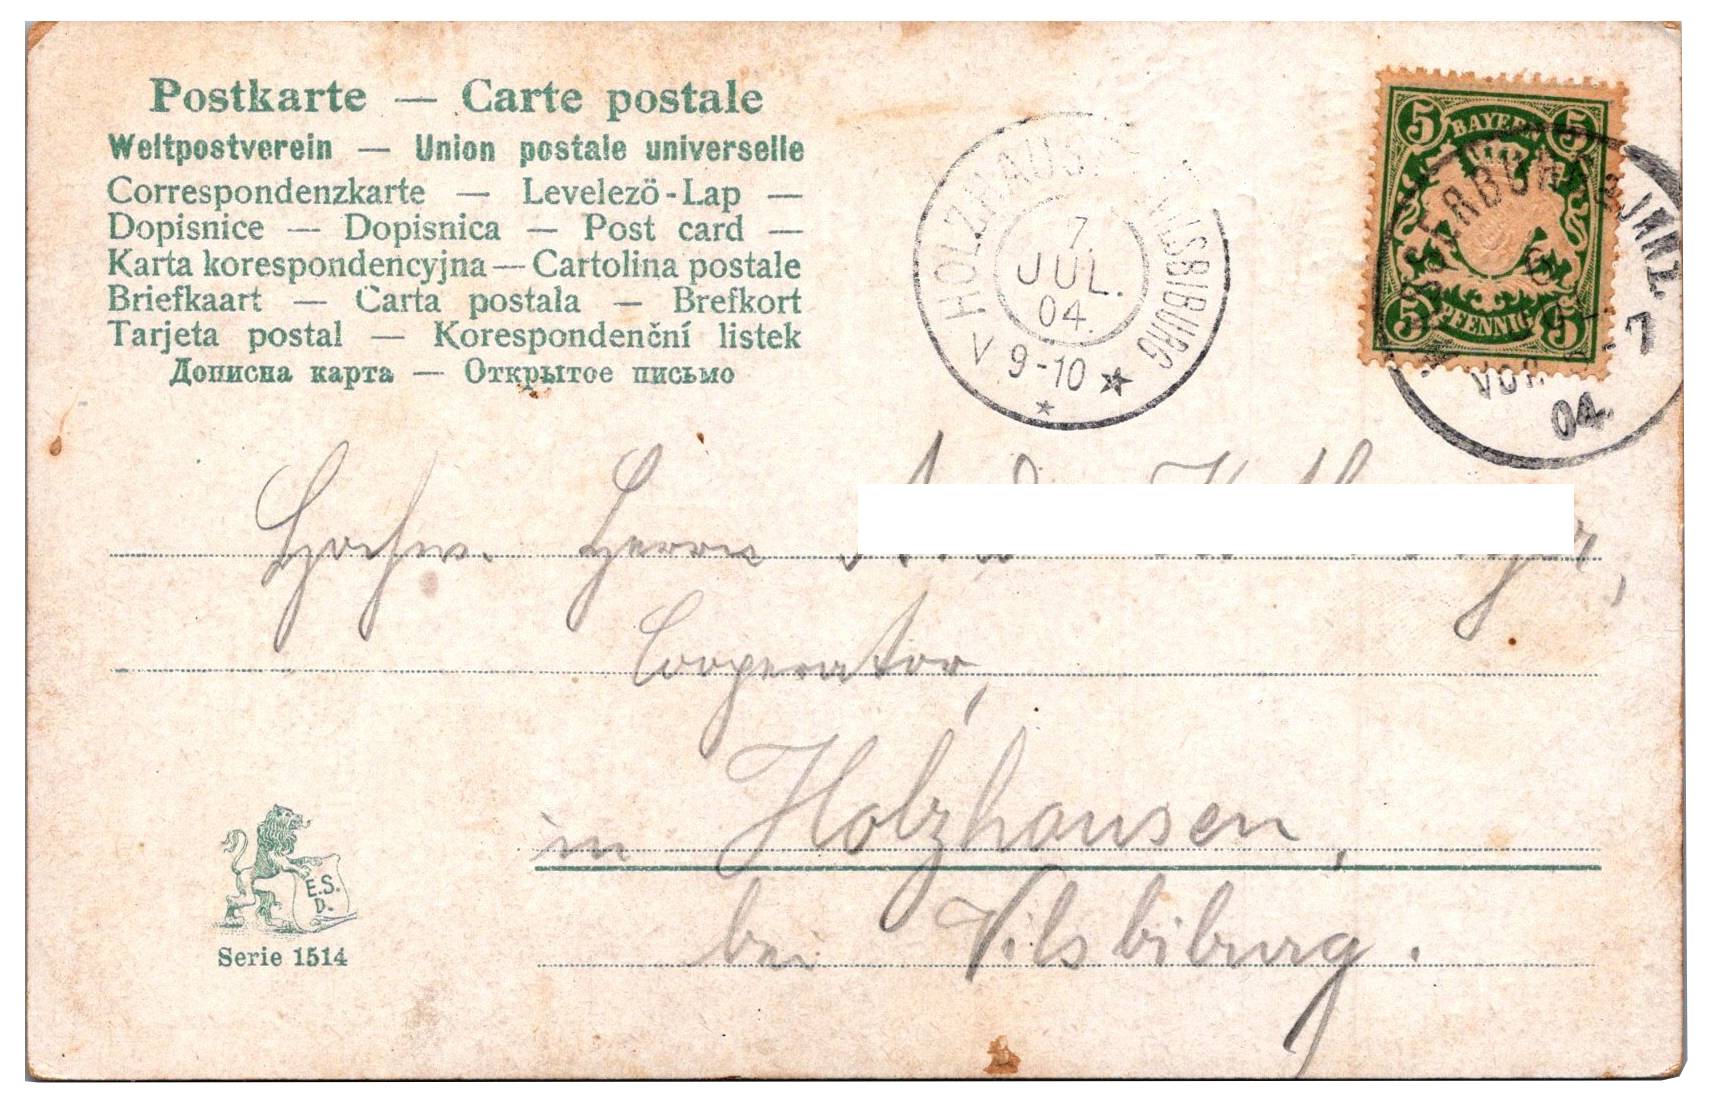 Postkarte — Carte postale
Weltpostverein — Union postale universelle
Correspondenzkarte — Levelező-Lap —
Dopisnice — Dopisnica — Post card —
Karta korespondencyjna — Cartolina postale
Briefkaart — Carta postala — Brefkort
Tarjeta postal — Korespondenční listek
Дописна карта — Открытое письмо
HOLZHAUSEN VILSBIBURG
7.
JUL.
04.
V 9-10
5 BAYERN 5
5 PFENNIG 5
WASSERBURG
VOR. 
04.
Hochw. Herrn
Cooperator,
in Holzhausen,
bei Vilsbiburg.
E.S.
D.
Serie 1514